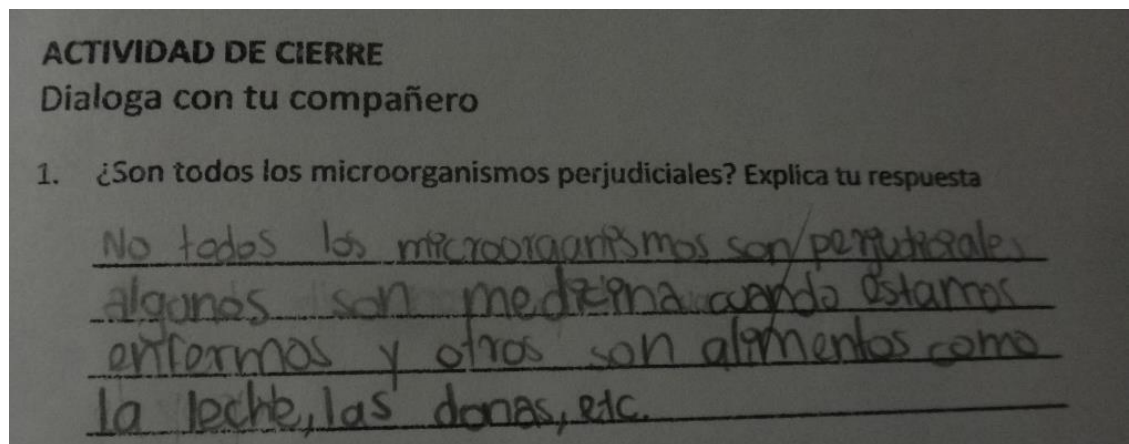 ACTIVIDAD DE CIERRE
Dialoga con tu compañero
1. ¿Son todos los microorganismos perjudiciales? Explica tu respuesta
No todos los microorganismos son perjudiciales
algunos son medicina cuando estamos
enfermos y otros son alimentos como
la leche, las donas, etc.